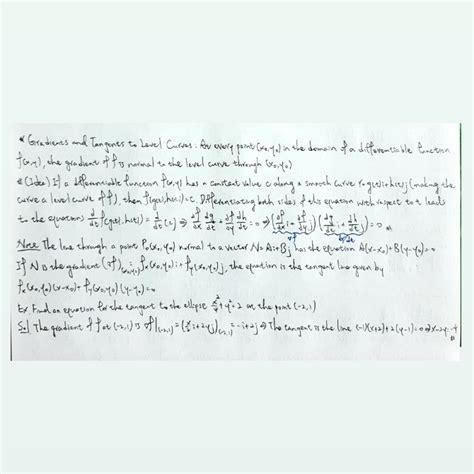 * Gradients and Tangents to Level Curves: At every point (x₀,y₀) in the domain of a differentiable function
f(x,y), the gradient of f is normal to the level curve through (x₀,y₀)
* (Idea) If a differentiable function f(x,y) has a constant value c along a smooth curve r=g(t)i+h(t)j (making the
curve a level curve of f), then f(g(t),h(t))=c. Differentiating both sides of this equation with respect to t leads
to the equations d/dt f(g(t),h(t)) = d/dt (c) ⇒ ∂f/∂x dg/dt + ∂f/∂y dh/dt = 0 ⇒ (∂f/∂x i + ∂f/∂y j)·(dg/dt i + dh/dt j) = 0
∇f dr/dt
Note The line through a point P₀(x₀,y₀) normal to a vector N=Ai+Bj has the equation A(x-x₀)+B(y-y₀)=0
If N is the gradient (∇f)|(x₀,y₀) = fx(x₀,y₀)i + fy(x₀,y₀)j, the equation is the tangent line given by
fx(x₀,y₀)(x-x₀)+fy(x₀,y₀)(y-y₀)=0
Ex Find an equation for the tangent to the ellipse x²/4 + y² = 2 at the point (-2,1)
Sol The gradient of f at (-2,1) is ∇f|(-2,1) = (x/2 i + 2yj)|(-2,1) = -i+2j ⇒ The tangent is the line (-1)(x+2)+2(y-1)=0 ⇒ x-2y=-4